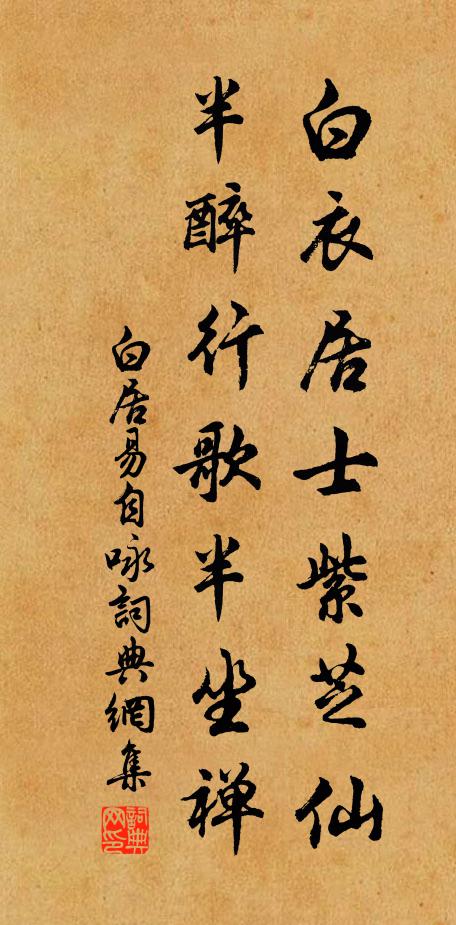 白衣居士紫芝仙
半醉行歌半坐禅
白居易自咏詞典網集
詞典网印